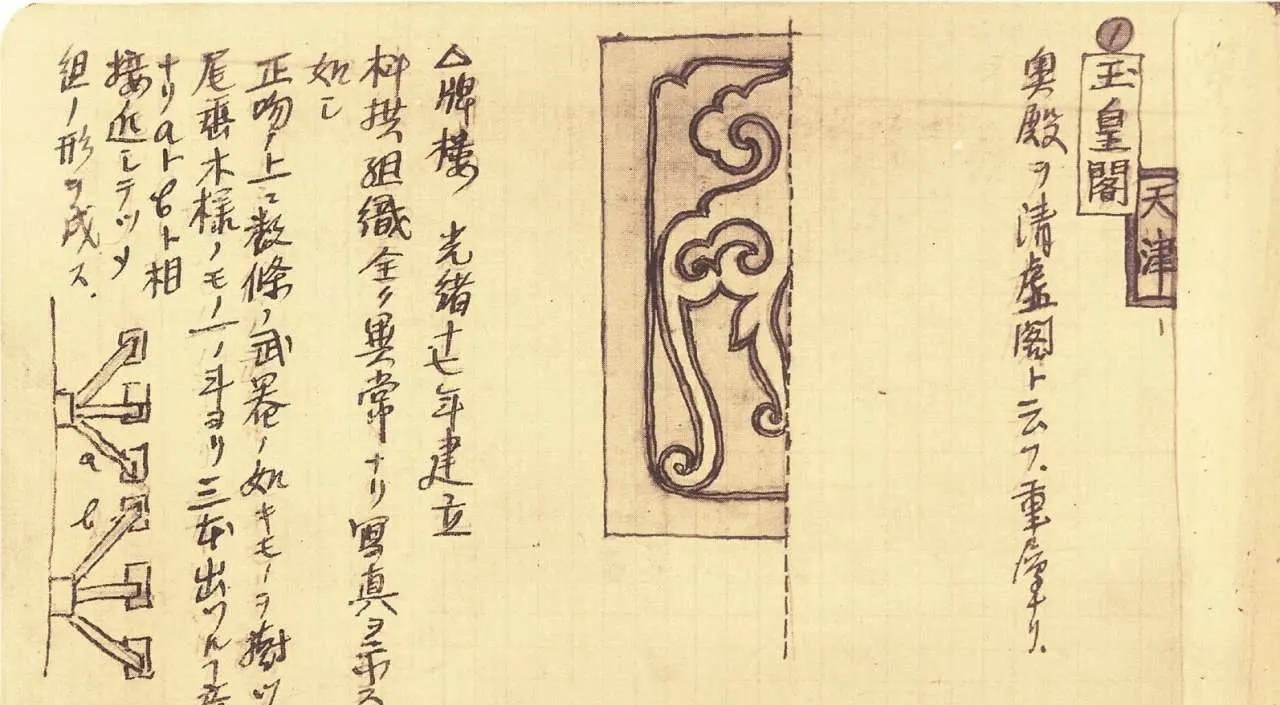 天津
① 玉皇閣
奥殿ヲ清虚閣ト云フ、重層ナリ、
△牌樓 光緒十七年建立
枓拱組織全ク異常ナリ写真ヲ示ス
如シ
正吻ノ上ニ数條ノ武器ノ如キモノヲ樹ツ
尾垂木様ノモノ一ノ斗ヨリ三本出ツル
ナリaトbト相
接近シテツメ
組ノ形ヲ成ス、
a
b